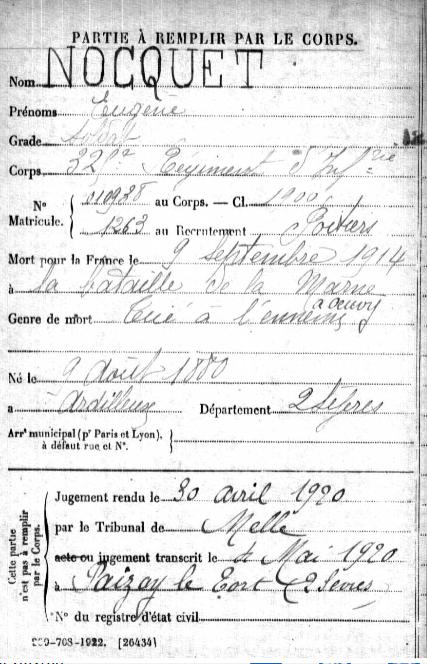 PARTIE À REMPLIR PAR LE CORPS.
Nom NOCQUET
Prénoms Eugène
Grade soldat
Corps 32e Régiment d'Infrie
No Matricule. 010938 au Corps. — Cl. 1900
1263 au Recrutement Poitiers
Mort pour la France le 9 septembre 1914
à la bataille de la Marne
à Oeuvy
Genre de mort Tué à l'ennemi
Né le 9 août 1880
à Ardilleux Département 2 Sèvres
Arrt municipal (pr Paris et Lyon),
à défaut rue et No.
Cette partie
n'est pas à remplir
par le Corps.
Jugement rendu le 30 avril 1920
par le Tribunal de Melle
acte ou jugement transcrit le 4 Mai 1920
à Paizay le Tort (2 Sèvres
No du registre d'état civil
-708-1922. [26434]